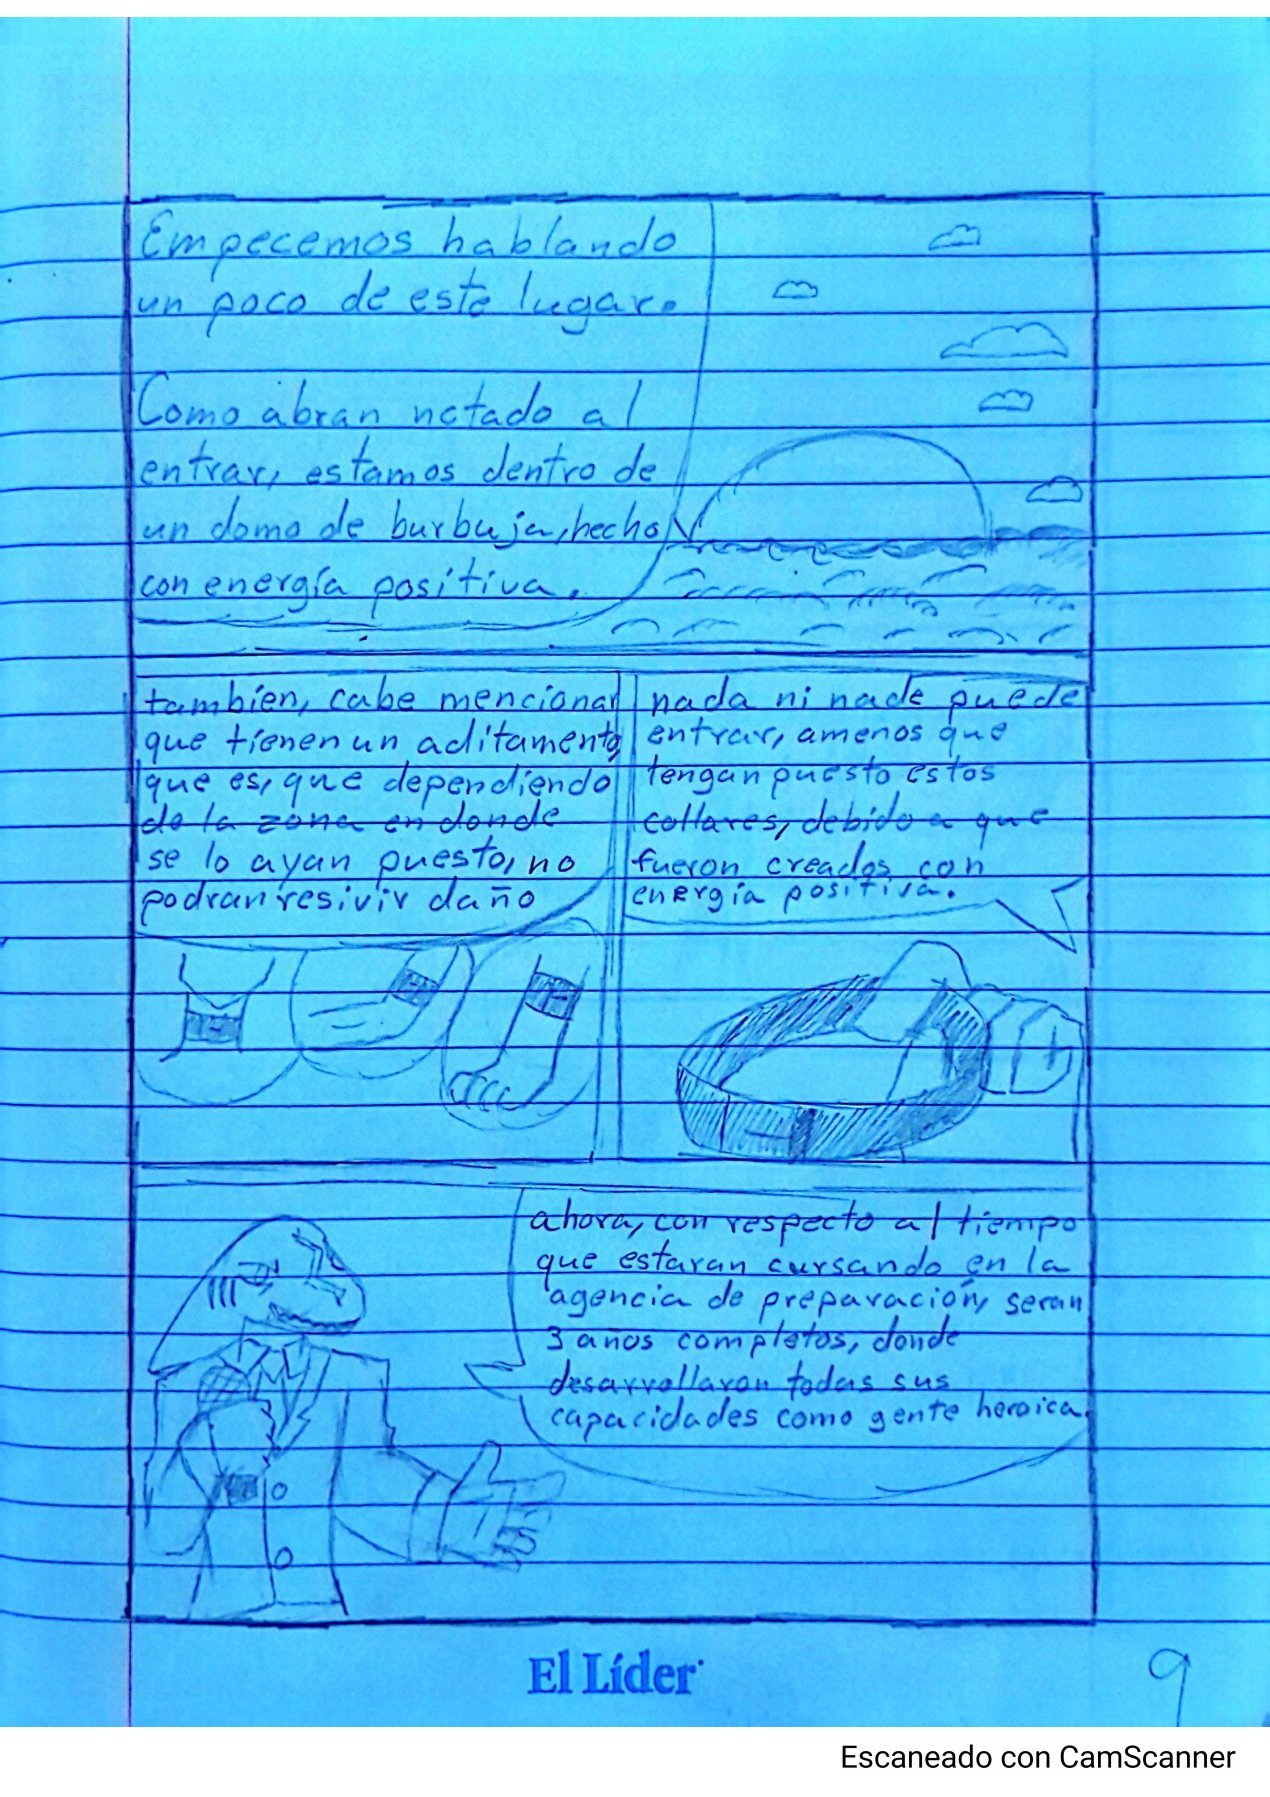 Empecemos hablando
un poco de este lugar.
Como abran notado al
entrar, estamos dentro de
un domo de burbuja, hecho
con energía positiva.
tambien, cabe mencionar
que tienen un aditamento,
que es, que dependiendo
de la zona en donde
se lo ayan puesto, no
podran resivir daño
nada ni nade puede
entrar, amenos que
tengan puesto estos
collares, debido a que
fueron creados con
energía positiva.
ahora, con respecto al tiempo
que estaran cursando en la
agencia de preparación, seran
3 años completos, donde
desarrollaron todas sus
capacidades como gente heroica.
El Líder
9
Escaneado con CamScanner